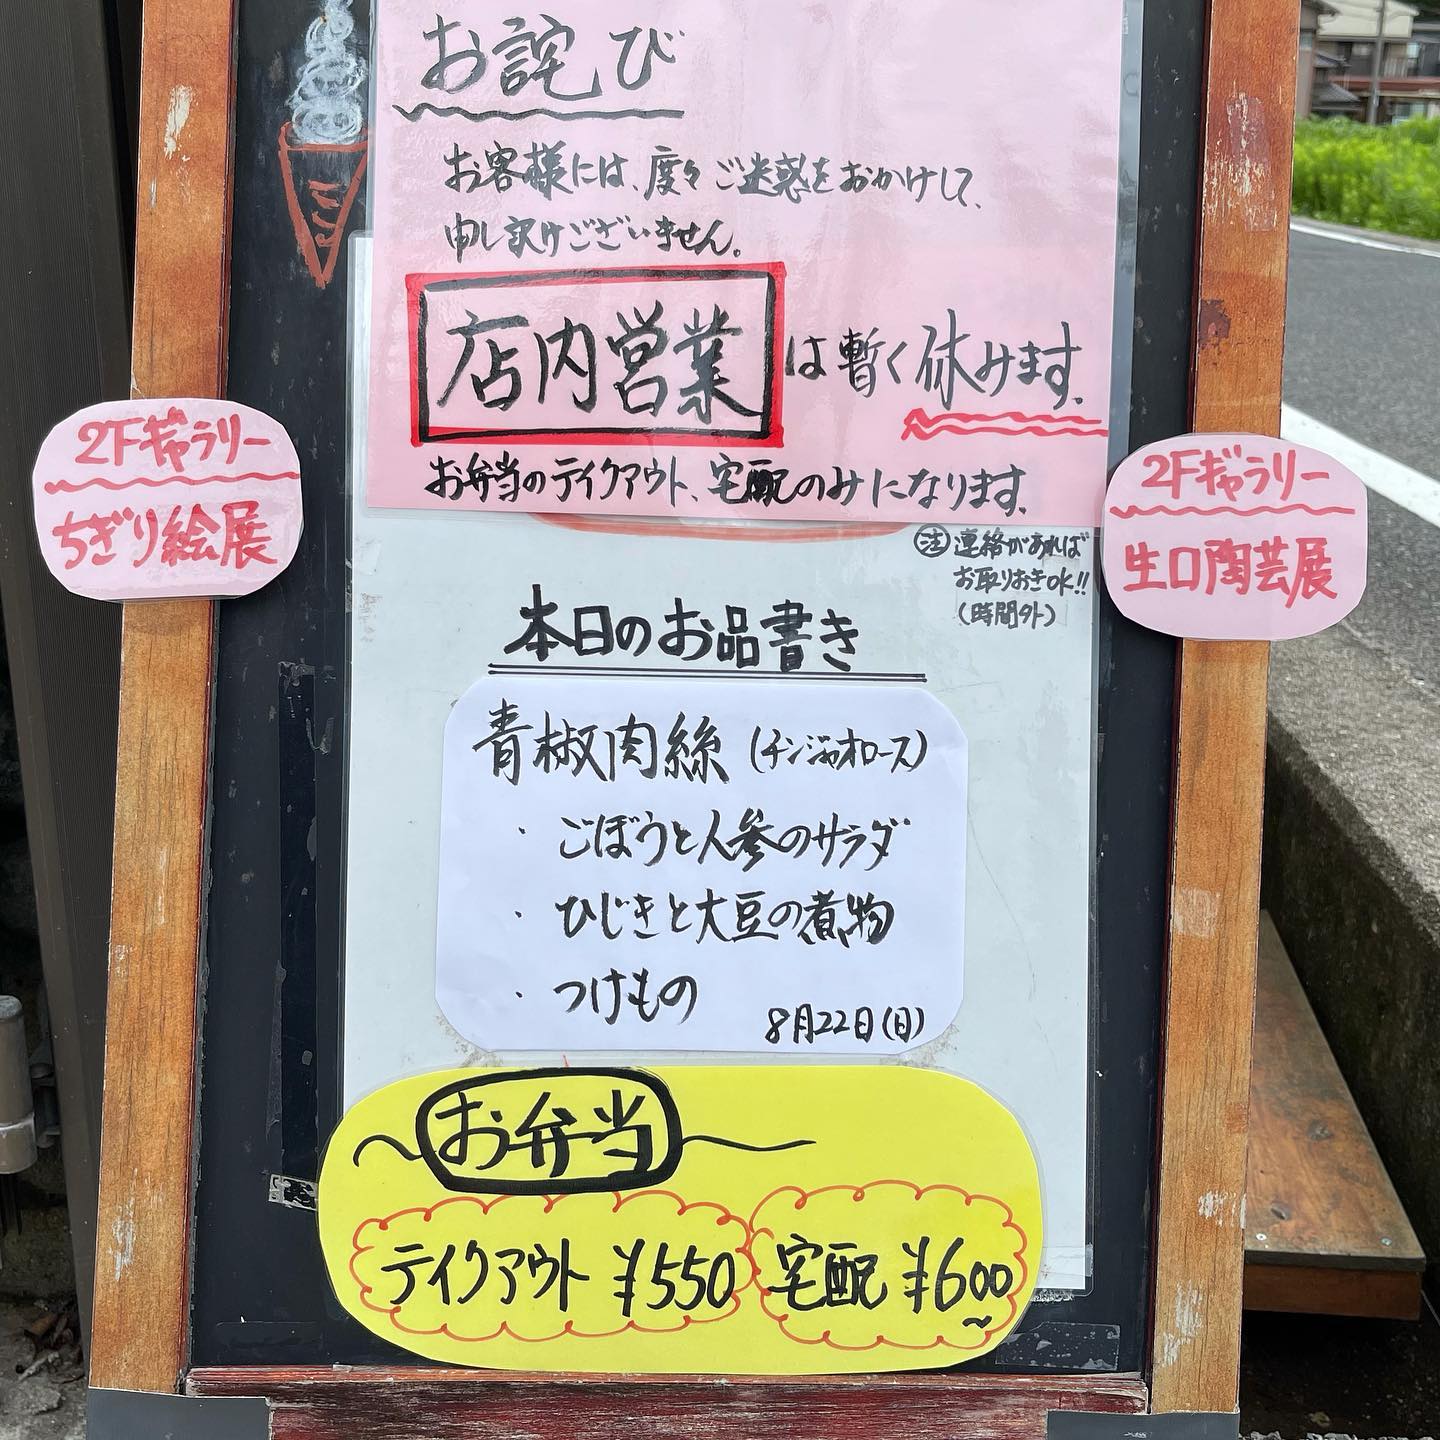 お詫び
お客様には、度々ご迷惑をおかけして、
申し訳けございません。
店内営業は暫く休みます。
お弁当のテイクアウト、宅配のみになります。
注 連絡があれば
お取りおきOK!!
(時間外)
2Fギャラリー
ちぎり絵展
2Fギャラリー
生口陶芸展
本日のお品書き
青椒肉絲(チンジャオロース)
・ごぼうと人参のサラダ
・ひじきと大豆の煮物
・つけもの
8月22日(日)
〜お弁当〜
テイクアウト ¥550
宅配 ¥600〜